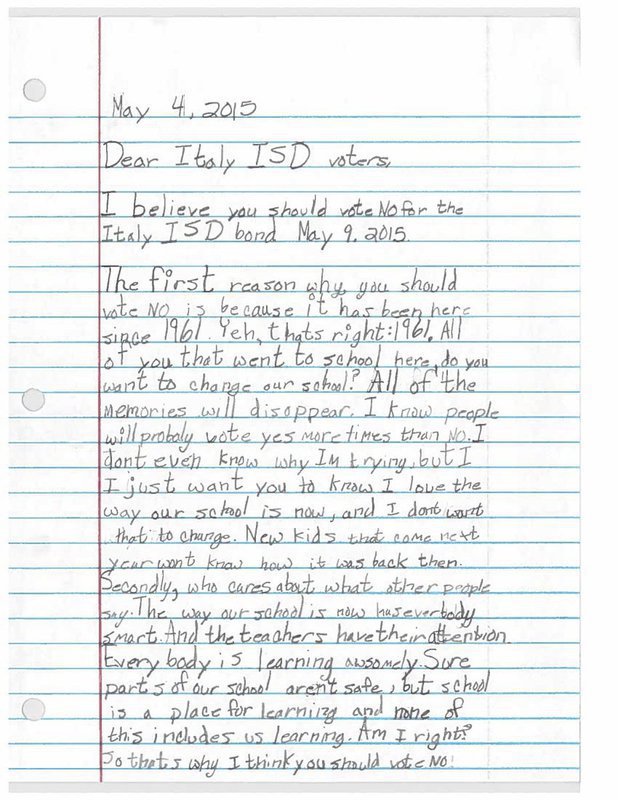 May 4, 2015
Dear Italy ISD voters,
I believe you should vote NO for the
Italy ISD bond May 9. 2015.
The first reason why, you should
vote NO is because it has been here
since 1961. Yeh, thats right: 1961. All
of you that went to school here, do you
want to change our school? All of the
memories will disoppear. I know people
will probaly vote yes more times than NO. I
dont even know why Im trying, but I
I just want you to know I love the
way our school is now, and I dont want
that to change. New kids that come next
year wont know how it was back then.
Secondly, who cares about what other people
say. The way our school is now has everbody
smart. And the teachers have their attention.
Every body is learning awsomely. Sure
parts of our school arent safe, but school
is a place for learning and none of
this includes us learning. Am I right?
So thats why I think you should vote NO!